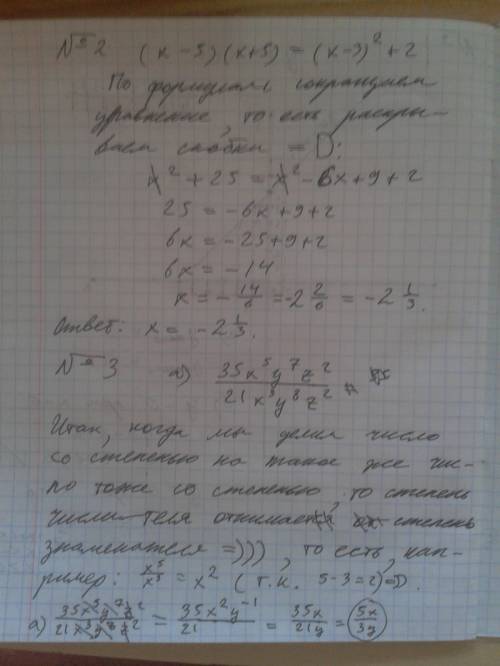 №2 (x-5)(x+5) = (x-3)² + 2
По формулам сокращаем
уравнение, то есть раскры-
ваем скобки =D:
x² + 25 = x² - 6x + 9 + 2
25 = -6x + 9 + 2
6x = -25 + 9 + 2
6x = -14
x = -14/6 = -2 2/6 = -2 1/3.
Ответ: x = -2 1/3.
№3 а) 35x⁵y⁷z² / 21x³y⁸z² =
Итак, когда мы делим число
со степенью на такое же чис-
ло тоже со степенью, то степень
числителя отнимает степень
знаменателя =))), то есть, нап-
ример: x⁵/x³ = x² (т.к. 5-3=2)=D.
а) 35x⁵y⁷z² / 21x³y⁸z² = 35x²y⁻¹ / 21 = 35x / 21y = 5x / 3y